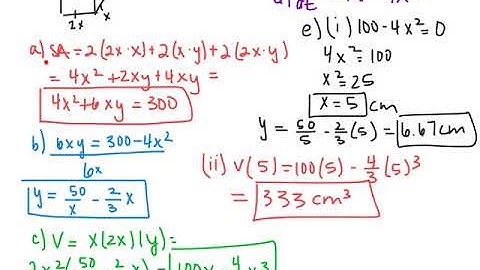 2x
x
a) SA = 2(2x·x)+2(x·y)+2(2x·y)
= 4x²+2xy+4xy =
4x²+6xy = 300
b) 6xy = 300-4x²
6x
y = 50/x - 2/3 x
c) V = x(2x)(y) =
e) (i) 100-4x²=0
4x² = 100
x² = 25
x = 5 cm
y = 50/5 - 2/3 (5) = 6.67cm
(ii) V(5) = 100(5) - 4/3 (5)³
= 333 cm³